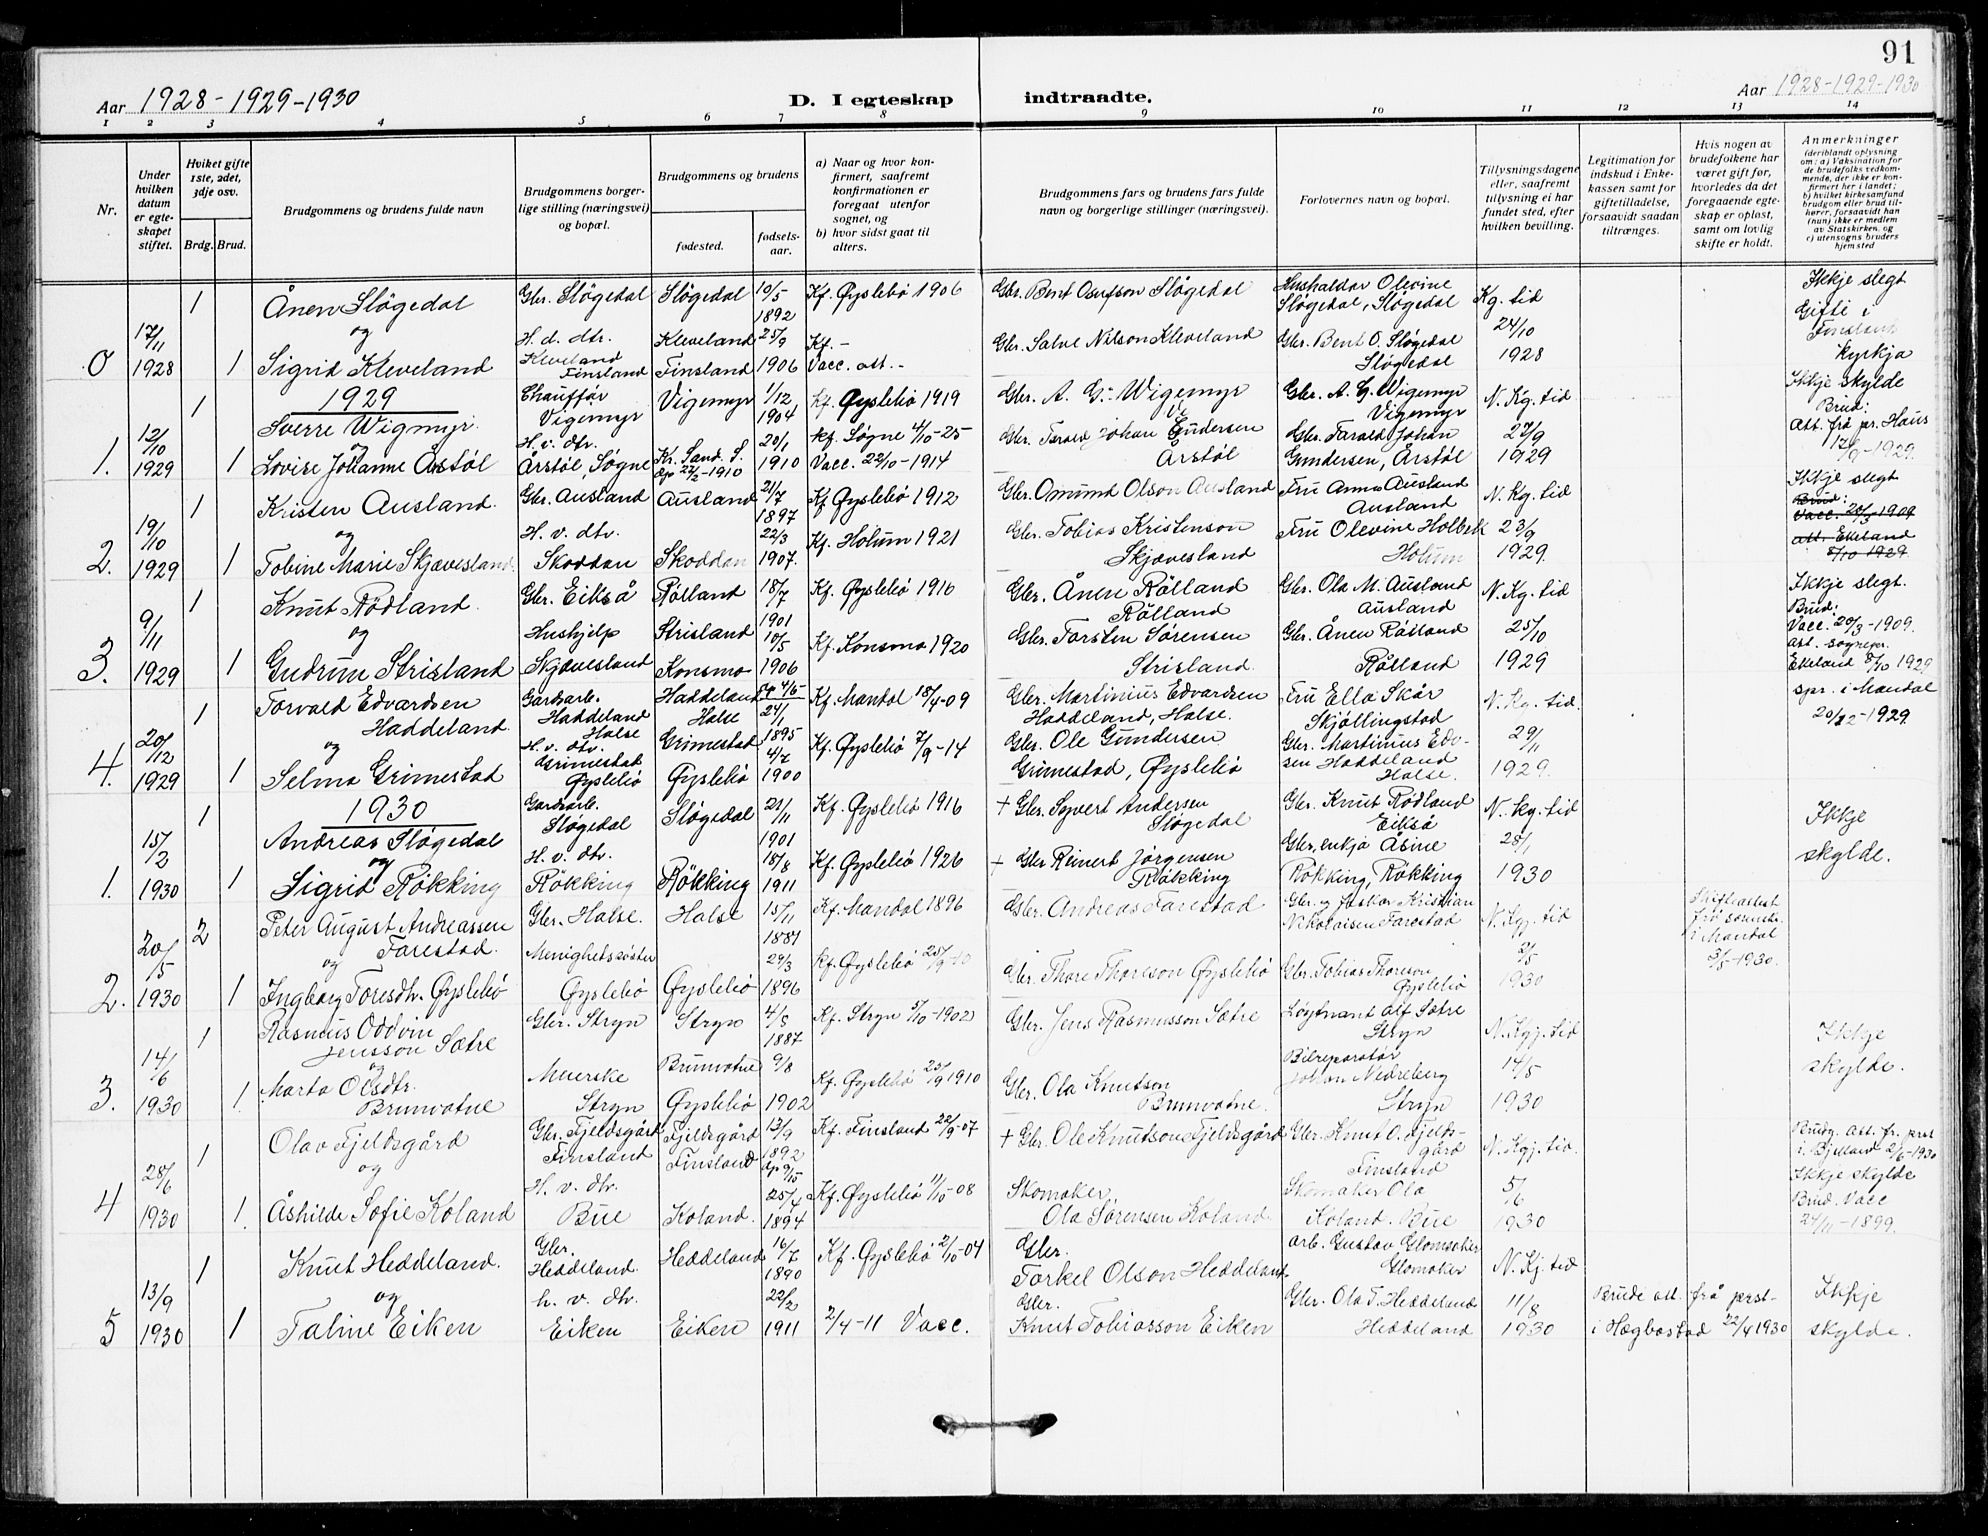 91
Aar 1928-1929-1930
D. I egteskap indtraadte.
Aar 1928-1929-1930
1 2 3 4 5 6 7 8 9 10 11 12 13 14
Nr.
Under hvilken datum er egteskapet stiftet.
Hviket gifte 1ste, 2det, 3dje osv.
Brdg. Brud.
Brudgommens og brudens fulde navn
Brudgommens borgerlige stilling (næringsvei) og bopæl.
Brudgommens og brudens
fødested.
fødselsaar.
a) Naar og hvor konfirmert, saafremt konfirmationen er foregaat utenfor sognet, og
b) hvor sidst gaat til alters.
Brudgommens fars og brudens fars fulde navn og borgerlige stillinger (næringsvei).
Forlovernes navn og bopæl.
Tillysningsdagene eller, saafremt tillysning ei har fundet sted, efter hvilken bevilling.
Legitimation for indskud i Enkekassen samt for giftetilladelse, forsaavidt saadan tiltrænges.
Hvis nogen av brudefolkene har været gift før, hvorledes da det foregaaende egteskap er opløst, samt om lovlig skifte er holdt.
Anmerkninger
(deriblandt oplysning om: a) Vaksination for de brudefolks vedkommende, der ikke er konfirmert her i landet;
b) hvilket kirkesamfund brudgom eller brud tilhører, forsaavidt han (hun) ikke er medlem av Statskirken, og
c) utensogns bruders hjemsted
0 17/11 1928 1 1
Ånen Sløgedal
og
Sigrid Kleveland
Gbr. Sløgedal
H. d. dtr.
Kleveland
Finsland
Sløgedal
Kleveland
Finsland
10/5 1892
25/9 1906
Kf. Øyslebø 1906
Kf. -
Vacc. att. -
Gbr. Bent Osufson Sløgedal
Gbr. Salve Nilson Kleveland
Hushaldar Olevine
Sløgedal, Sløgedal
Gbr. Bent O. Sløgedal
Sløgedal
Kg. tid
24/10
1928
Ikkje slegt
Gifte i
Finsland
Kyrkja
1929
1. 12/10 1929 1 1
Sverre Wigmyr.
og
Lovise Johanne Årstøl
Chauffør
Vigemyr
H. v. dtr.
Årstøl, Søgne
Vigemyr
Kr. Sand. S.
Dp 27/2-1910
1/12 1904
20/1 1910
Kf. Øyslebø 1919
Kf. Søgne 4/10-25
Vacc. 22/10-1914
Gbr. A. G. Wigemyr
Gbr. Tarald Johan Gundersen
Årstøl
Gbr. A. G. Wigemyr
Vigemyr
Gbr. Tarald Johan
Gundersen, Årstøl
N. Kg. tid
27/9
1929
Ikkje skylde
Brud:
Att. frå pr. Haus
17/9-1929.
2. 19/10 1929 1 1
Kristen Ausland.
og
Tobine Marie Skjævesland.
Gbr. Ausland
H. v. dtr.
Skoddan
Ausland
Skoddan
21/7 1897
22/3 1907.
Kf Øyslebø 1912
Kf. Holum 1921
Gbr. Omund Olson Ausland
Gbr. Tobias Kristenson
Skjævesland
Fru Anna Ausland
Ausland
Fru Olevine Holbek
Holum
N. Kg. tid
23/9
1929.
Ikkje slegt
Brud:
Vacc. 20/3-1909
att. Ekeland
8/10 1929
3. 9/11 1929 1 1
Knut Rødland.
og
Gudrun Strisland
Gbr. Eikså
Hushjelp
Skjævesland
Rølland
Strisland
Konsmo
18/7 1901
10/5 1906
Kf. Øyslebø 1916
Kf. Konsmo 1920
Gbr. Ånen Rølland
Rølland
Gbr. Torsten Sørensen
Strisland.
Gbr. Ola M. Ausland
Ausland
Gbr. Ånen Rølland
Rølland
N. Kg. tid
25/10
1929
Ikkje slegt.
Brud:
Vacc. 20/3-1909.
att. sognepr.
Ekeland 8/10 1929
4. 20/12 1929 1 1
Torvald Edvardsen
Haddeland.
og
Selma Grimestad
Gardsarb.
Haddeland
Halse
H. v. dtr.
Grimestad
Øyslebø
Haddeland
Halse
Grimestad
Øyslebø
24/1 1895
4/7 1900
Kf. Mandal 18/4-09
Kf. Øyslebø 7/9-14
Gbr. Martinius Edvardsen
Haddeland, Halse.
Gbr. Ole Gundersen
Grimestad, Øyslebø
Fru Ella Skår
Skjøllingstad
Gbr. Martinius Edvardsen
Haddeland
Halse.
N. Kg. tid.
29/11
1929.
Spr. i Mandal
20/12-1929.
1930
1. 15/2 1930 1 1
Andreas Sløgedal
og
Sigrid Røkking
Gardsarb.
Sløgedal
H. v. dtr.
Røkking
Sløgedal
Røkking
21/11 1901
18/8 1911
Kf. Øyslebø 1916
Kf. Øyslebø 1926
+ Gbr. Syvert Andersen
Sløgedal
+ Gbr Reinert Jørgensen
Røkking
Gbr. Knut Rødland
Eikså
Gbr. enkja Åsine
Røkking, Røkking
N. Kg. tid
28/1
1930
Ikkje
skylde.
2. 20/5 1930 2 1
Peter August Andreassen
Farestad.
og
Ingborg Toresdtr. Øyslebø
Gbr. Halse.
Menighetssøster
Øyslebø
Halse
Øyslebø
15/11 1881
29/3 1896
Kf. Mandal 1896
Kf. Øyslebø 25/9-10
Gbr. Andreas Farestad
Gbr. Thore Thoreson Øyslebø
Gbr. g. Jaskar Kristian
Nikolaisen Farestad
Gbr. Tobias Thoreson
Øyslebø
N. Kgj. tid
2/5
1930
Skifteattest
frå sorenskr.
i Mandal
3/5-1930.
3. 14/6 1930 1 1.
Rasmus Oddvin
Jensson Sætre
og
Marta Olsdtr.
Brunvatne
Gbr. Stryn
Meierske
Stryn
Stryn
Brunvatne
Øyslebø
4/8 1887
9/8 1902
Kf. Stryn 5/10-1902
Kf. Øyslebø 25/9 1910
Gbr. Jens Rasmusson Sætre
Gbr. Ola Knutson
Brunvatne.
Løytnant Alf Sætre
Stryn
Bilreparatør
Johan Nedreberg
Stryn
N. Kgj. tid
14/5
1930
Ikkje
skylde.
4 28/6 1930 1 1.
Olav Fjeldsgård
og
Åshilde Sofie Koland
Gbr. Fjeldsgård
Finsland
H. v. dtr.
Bue
Fjeldsgård
Finsland
Koland.
13/9 1892
Dp 9/15
25/6 1894
Kf. Finsland 22/9-07
Kf. Øyslebø 11/10-08
+ Gbr. Ole Knutson Fjeldsgård
Skomaker.
Ola Sørensen Koland.
Gbr. Knut O. Fjeldsgård
Finsland
Skomaker Ola
Koland. Bue
N. Kgj. tid.
5/6
1930
Brudg. att. fr. prst
i. Bjelland 2/6-1930
Ikkje skylde
Brud. Vacc
24/11-1899.
5 13/9 1930 1 1
Knut Heddeland.
og
Taline Eiken
Gbr.
Heddeland.
h. v. dtr.
Eiken
Heddeland
Eiken
16/7 1890
22/2 1911
Kf. Øyslebø 2/10-04
2/4-11 Vacc.
Gbr.
Torkel Olson Heddeland
Gbr.
Knut Tobiasson Eiken
arb. Gustav Glomsaker
Glomsaker
Gbr. Ola T. Heddeland
Heddeland
N. Kj. tid
11/8
1930
Brude att. frå prst-
i Hægbostad 22/4 1930
Ikkje
skylde.